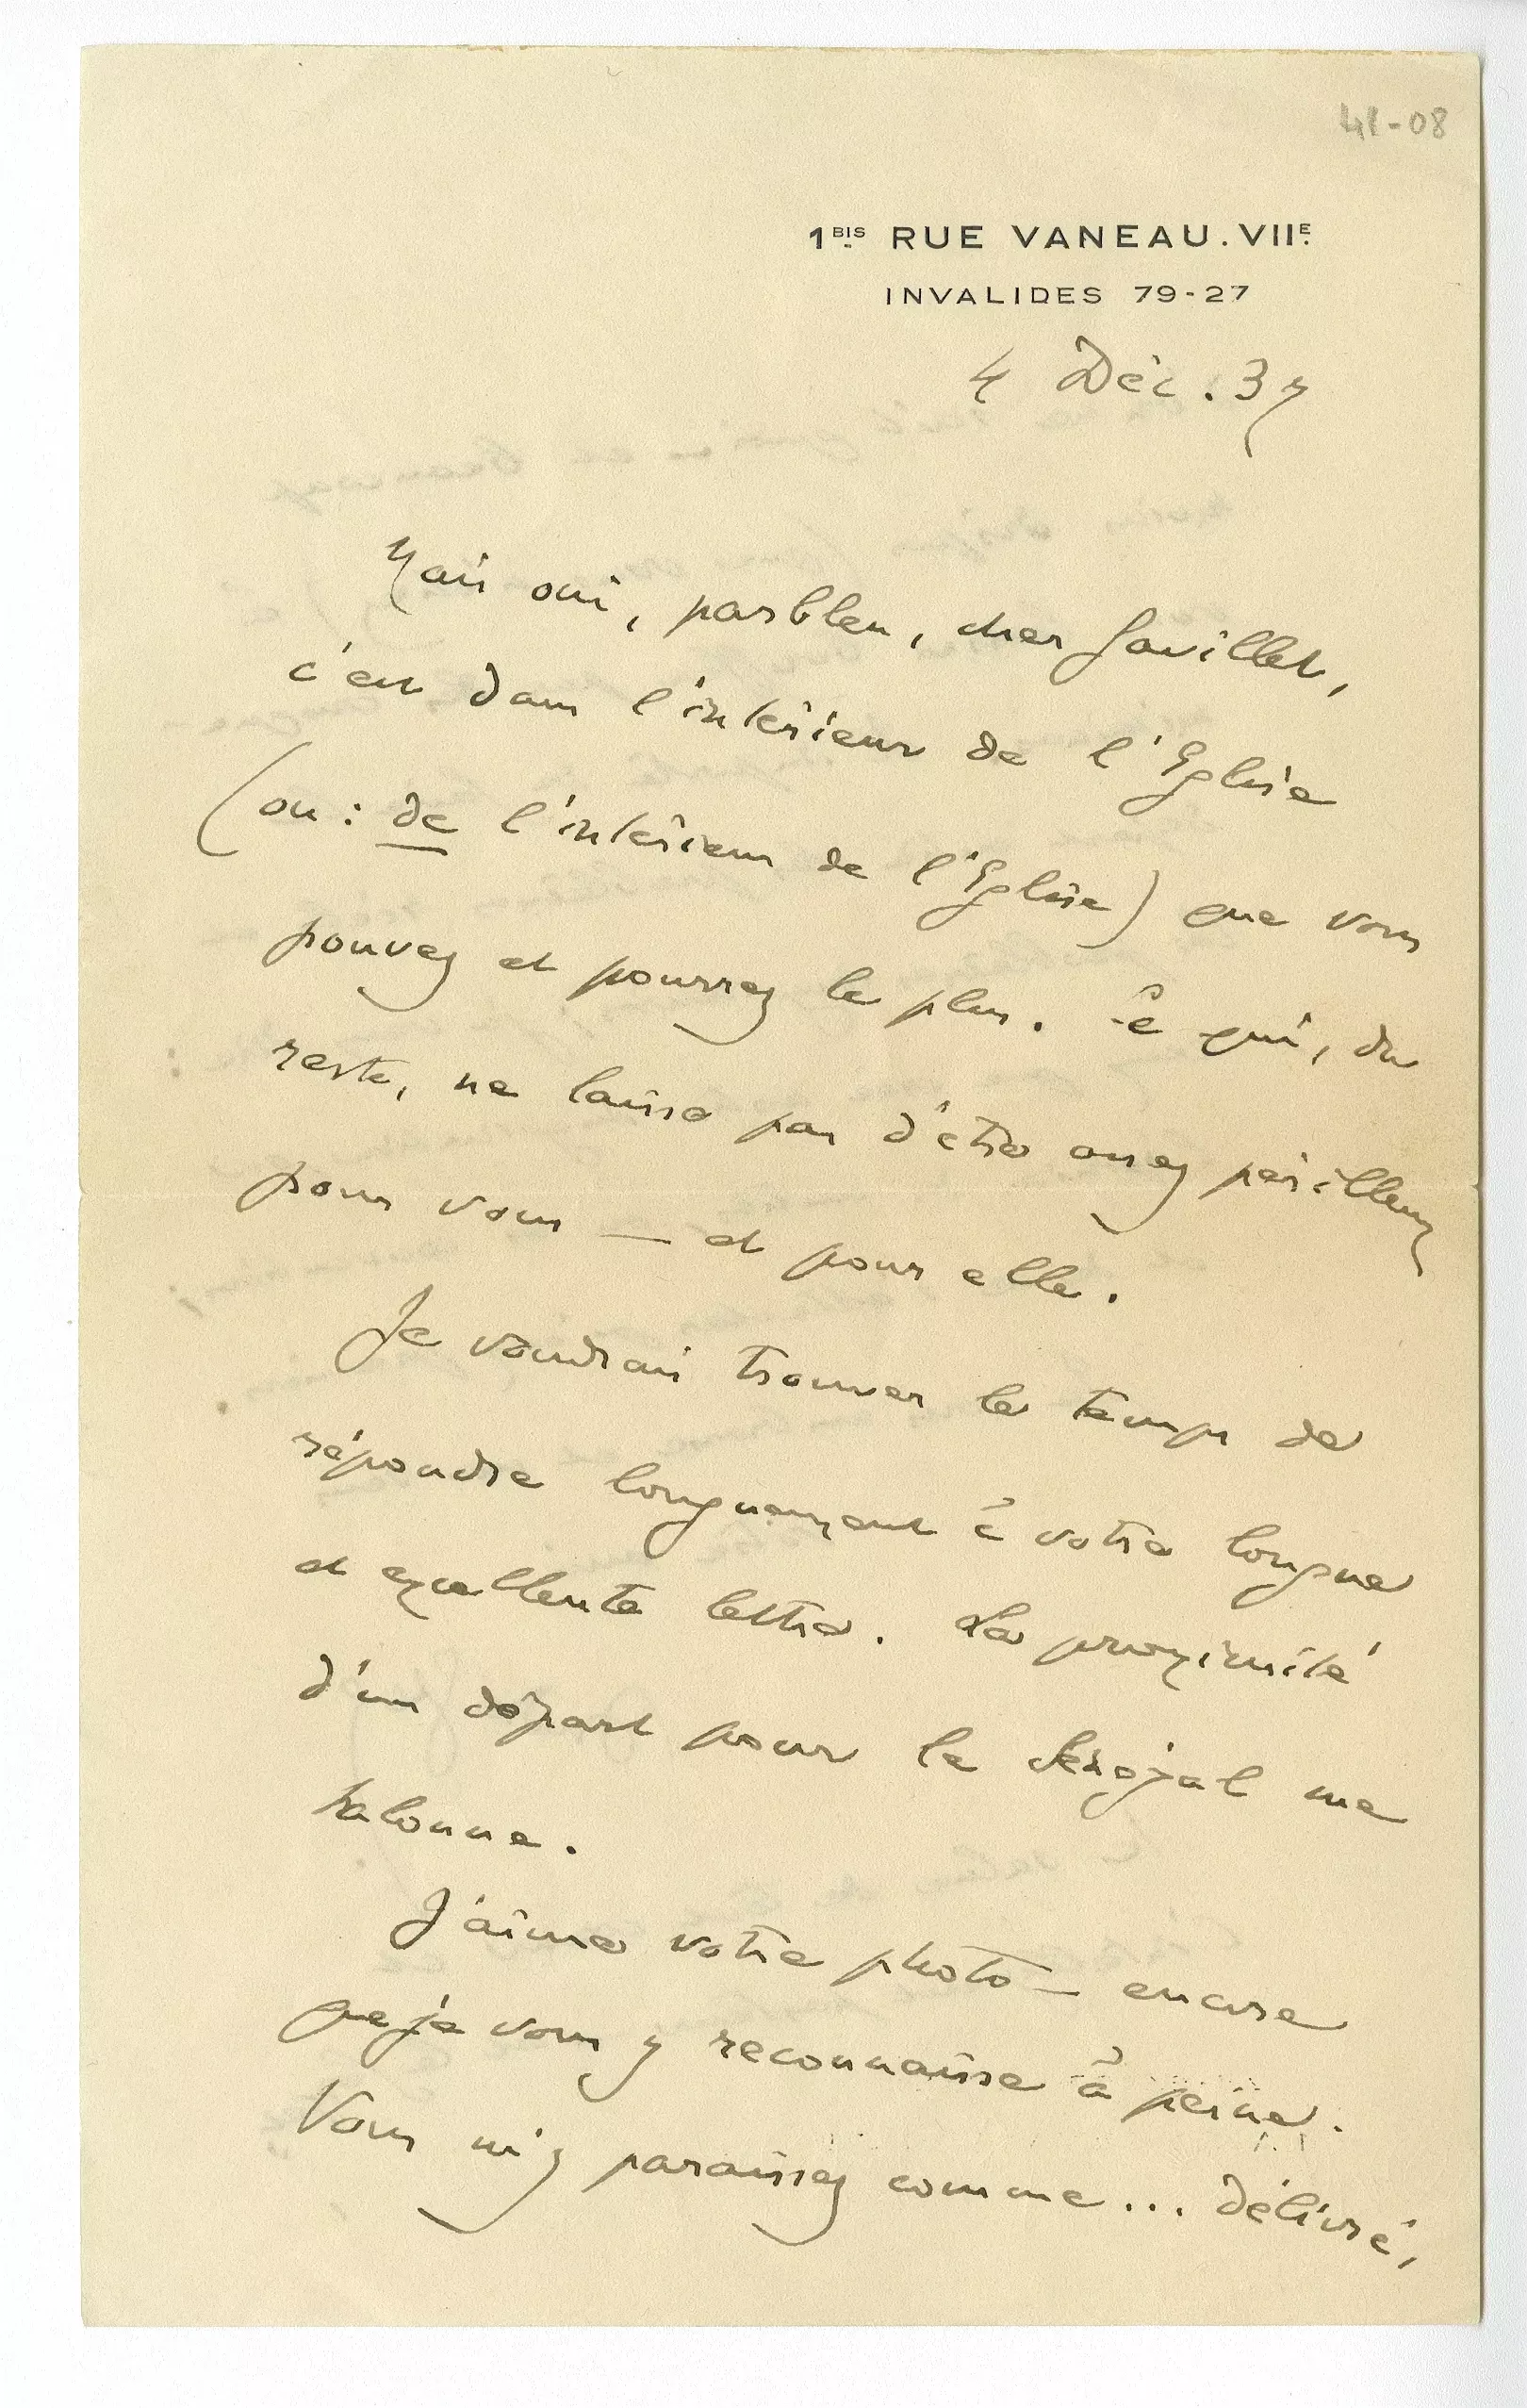 41-08
1BIS RUE VANEAU. VIIE.
INVALIDES 79-27
4 Déc. 37
Mais oui, parbleu, cher Gouillet,
c'est dans l'intérieur de l'Eglise
(ou : de l'intérieur de l'Eglise) que vous
pouvez et pourrez le plus. Ce qui, du
reste, ne laisse pas d'être assez périlleux
pour vous — et pour elle.
Je voudrais trouver le temps de
répondre longuement à votre longue
et excellente lettre. La proximité
d'un départ pour le Sénégal me
talonne.
J'aime votre photo — encore
que je vous y reconnaisse à peine.
Vous m'y paraissez comme... délivré,